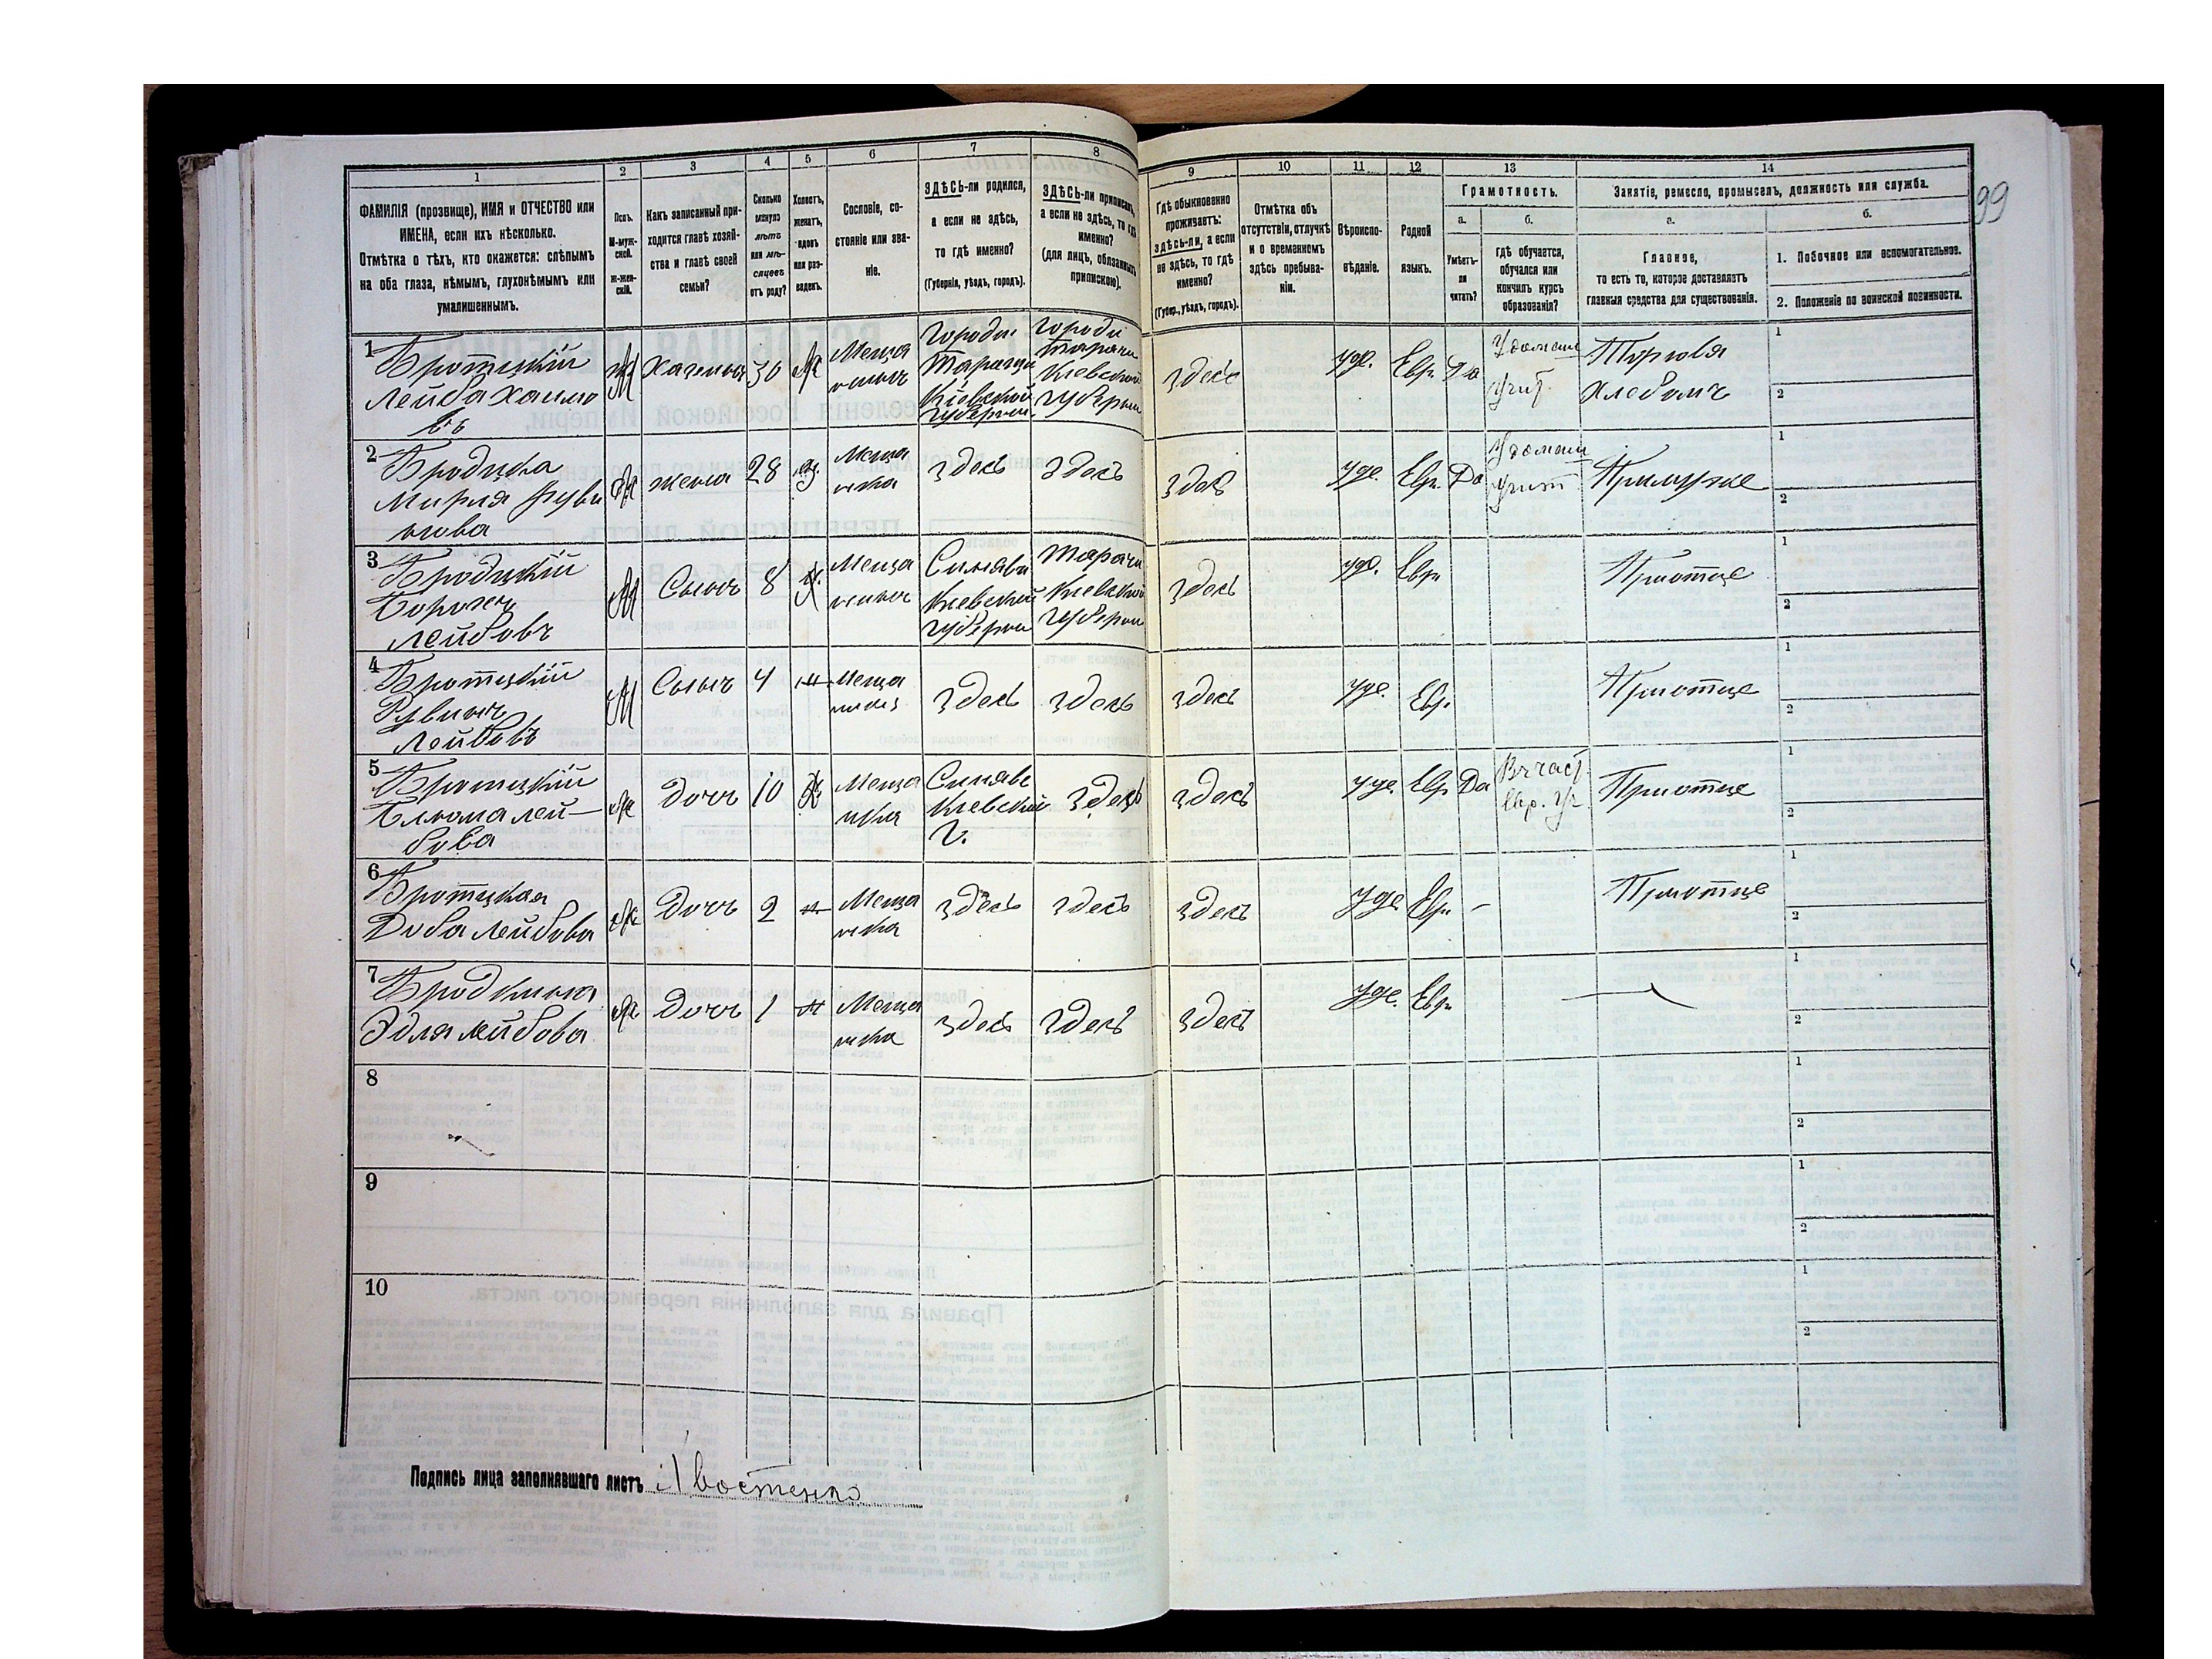 1 2 3 4 5 6 7 8 9 10 11 12 13 14
99
ФАМИЛІЯ (прозвище), ИМЯ и ОТЧЕСТВО или
ИМЕНА, если ихъ нѣсколько.
Отмѣтка о тѣхъ, кто окажется: слѣпымъ
на оба глаза, нѣмымъ, глухонѣмымъ или
умалишеннымъ.
Полъ.
М-муж-
ской.
ж-жен-
скій.
Какъ записанный при-
ходится главѣ хозяй-
ства и главѣ своей
семьи?
Сколько
минуло
лѣтъ
или мѣ-
сяцевъ
отъ роду?
Холостъ,
женатъ,
вдовъ
или раз-
веденъ.
Сословіе, со-
стояніе или зва-
ніе.
ЗДѢСЬ-ли родился,
а если не здѣсь,
то гдѣ именно?
(Губернія, уѣздъ, городъ).
ЗДѢСЬ-ли приписанъ,
а если не здѣсь, то гдѣ
именно?
(для лицъ, обязанныхъ
припискою).
Гдѣ обыкновенно
проживаетъ:
здѣсь-ли, а если
не здѣсь, то гдѣ
именно?
(Губер., уѣздъ, городъ).
Отмѣтка объ
отсутствіи, отлучкѣ
и о временномъ
здѣсь пребыва-
ніи.
Вѣроиспо-
вѣданіе.
Родной
языкъ.
Грамотность.
а.
Умѣетъ-
ли
читать?
б.
гдѣ обучается,
обучался или
кончилъ курсъ
образованія?
Занятіе, ремесло, промыселъ, должность или служба.
а.
Главное,
то есть то, которое доставляетъ
главныя средства для существованія.
б.
1. Побочное или вспомогательное.
2. Положеніе по воинской повинности.
1
Бротцкій
Лейба Хаимо
въ
М
Хазеинъ
30
Меща
нинъ
Городи
Таращи
Кіевской
губерніи
городи
Таращи
Кіевской
губерніи
здесь
уде.
Евр.
Да
Удомаш
учит.
Торговля
хлебомъ
1
2
2
Бродцка
Мирля Руви
нова
жена
28
Меща
нка
здесь
здесь
здесь
уде.
Евр.
Да
Удомаш
учит
Примуже
1
2
3
Бродцкій
Борохъ
Лейбовъ
М
Сынъ
8
Х.
Меща
нинъ
Синяви
Киевской
губерни
Таращи
Киевской
губерни
здесь
уде.
Евр
Приотце
1
2
4
Бротцкій
Рувинъ
Лейбовъ
М
Сынъ
4
Меща
здесь
здесь
здесь
уде.
Евр.
Приотце
1
2
5
Бротцкій
Блюма лей-
бова
Дочъ
10
Меща
нка
Синяве
Киевской
Г.
здесь
здесь
уде.
Евр
Да
Вчаст.
Евр. уч
Приотце
1
2
6
Бротцкая
Доба лейбова
Дочъ
2
Меща
нка
здесь
здесь
здесь
уде
Евр.
-
Приотце
1
2
7
Эдля лейбова
Дочъ
1
Меща
нка
здесь
здесь
здесь
уде.
Евр.
1
2
8
1
2
9
1
2
10
1
2
Подпись лица заполнявшаго листъ